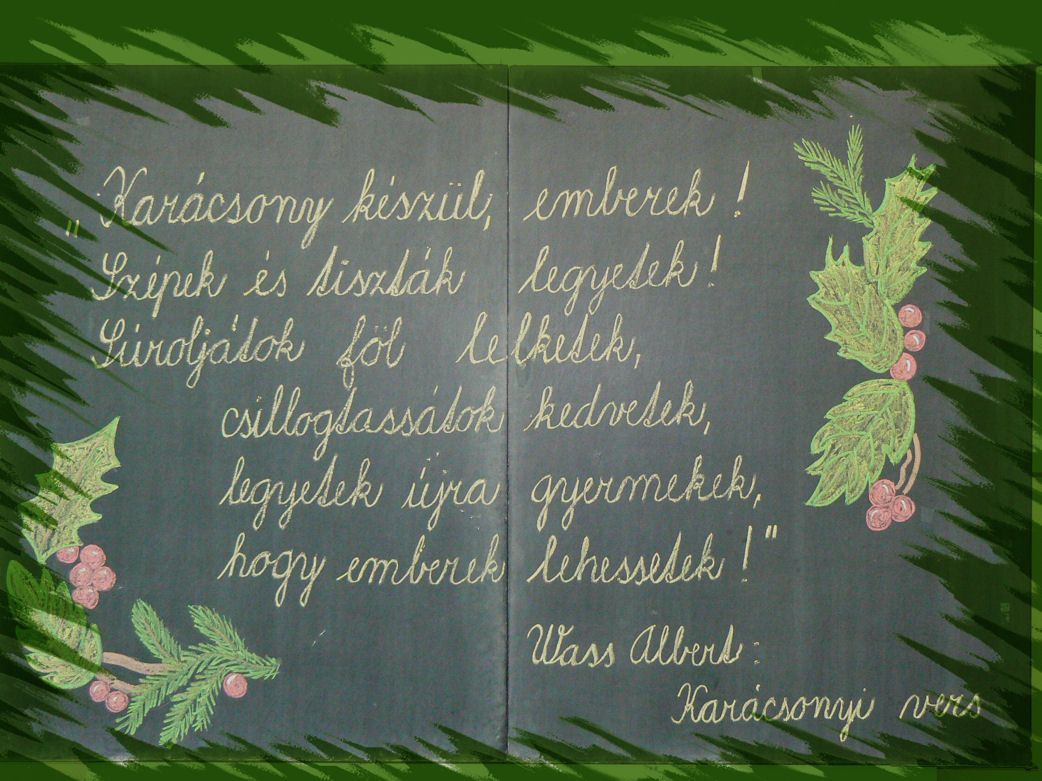 „Karácsony készül, emberek!
Szépek és tiszták legyetek!
Súroljátok föl lelketek,
csillogtassátok kedvetek,
legyetek újra gyermekek,
hogy emberek lehessetek!"
Wass Albert:
Karácsonyi vers